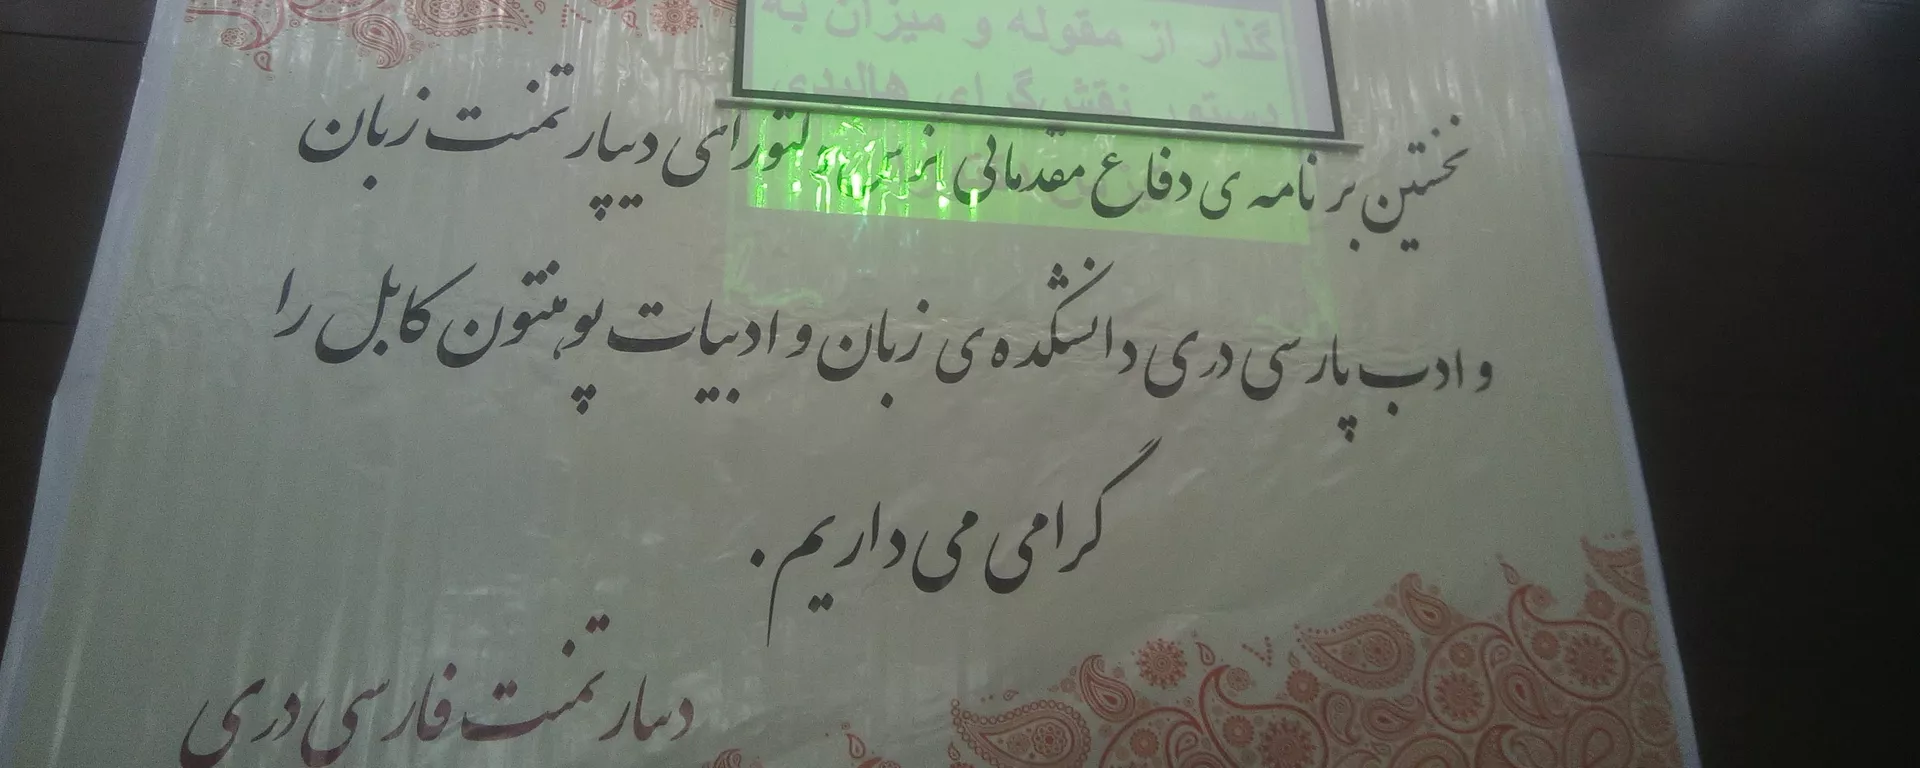 گذار از مقوله و میزان به
دستور نقش‌گرای هالیدی
نخستین برنامه ی دفاع مقدماتی تزس دکتورای دیپارتمنت زبان
و ادب پارسی دری دانشکده ی زبان و ادبیات پوهنتون کابل را
گرامی می داریم.
دیپارتمنت فارسی دری